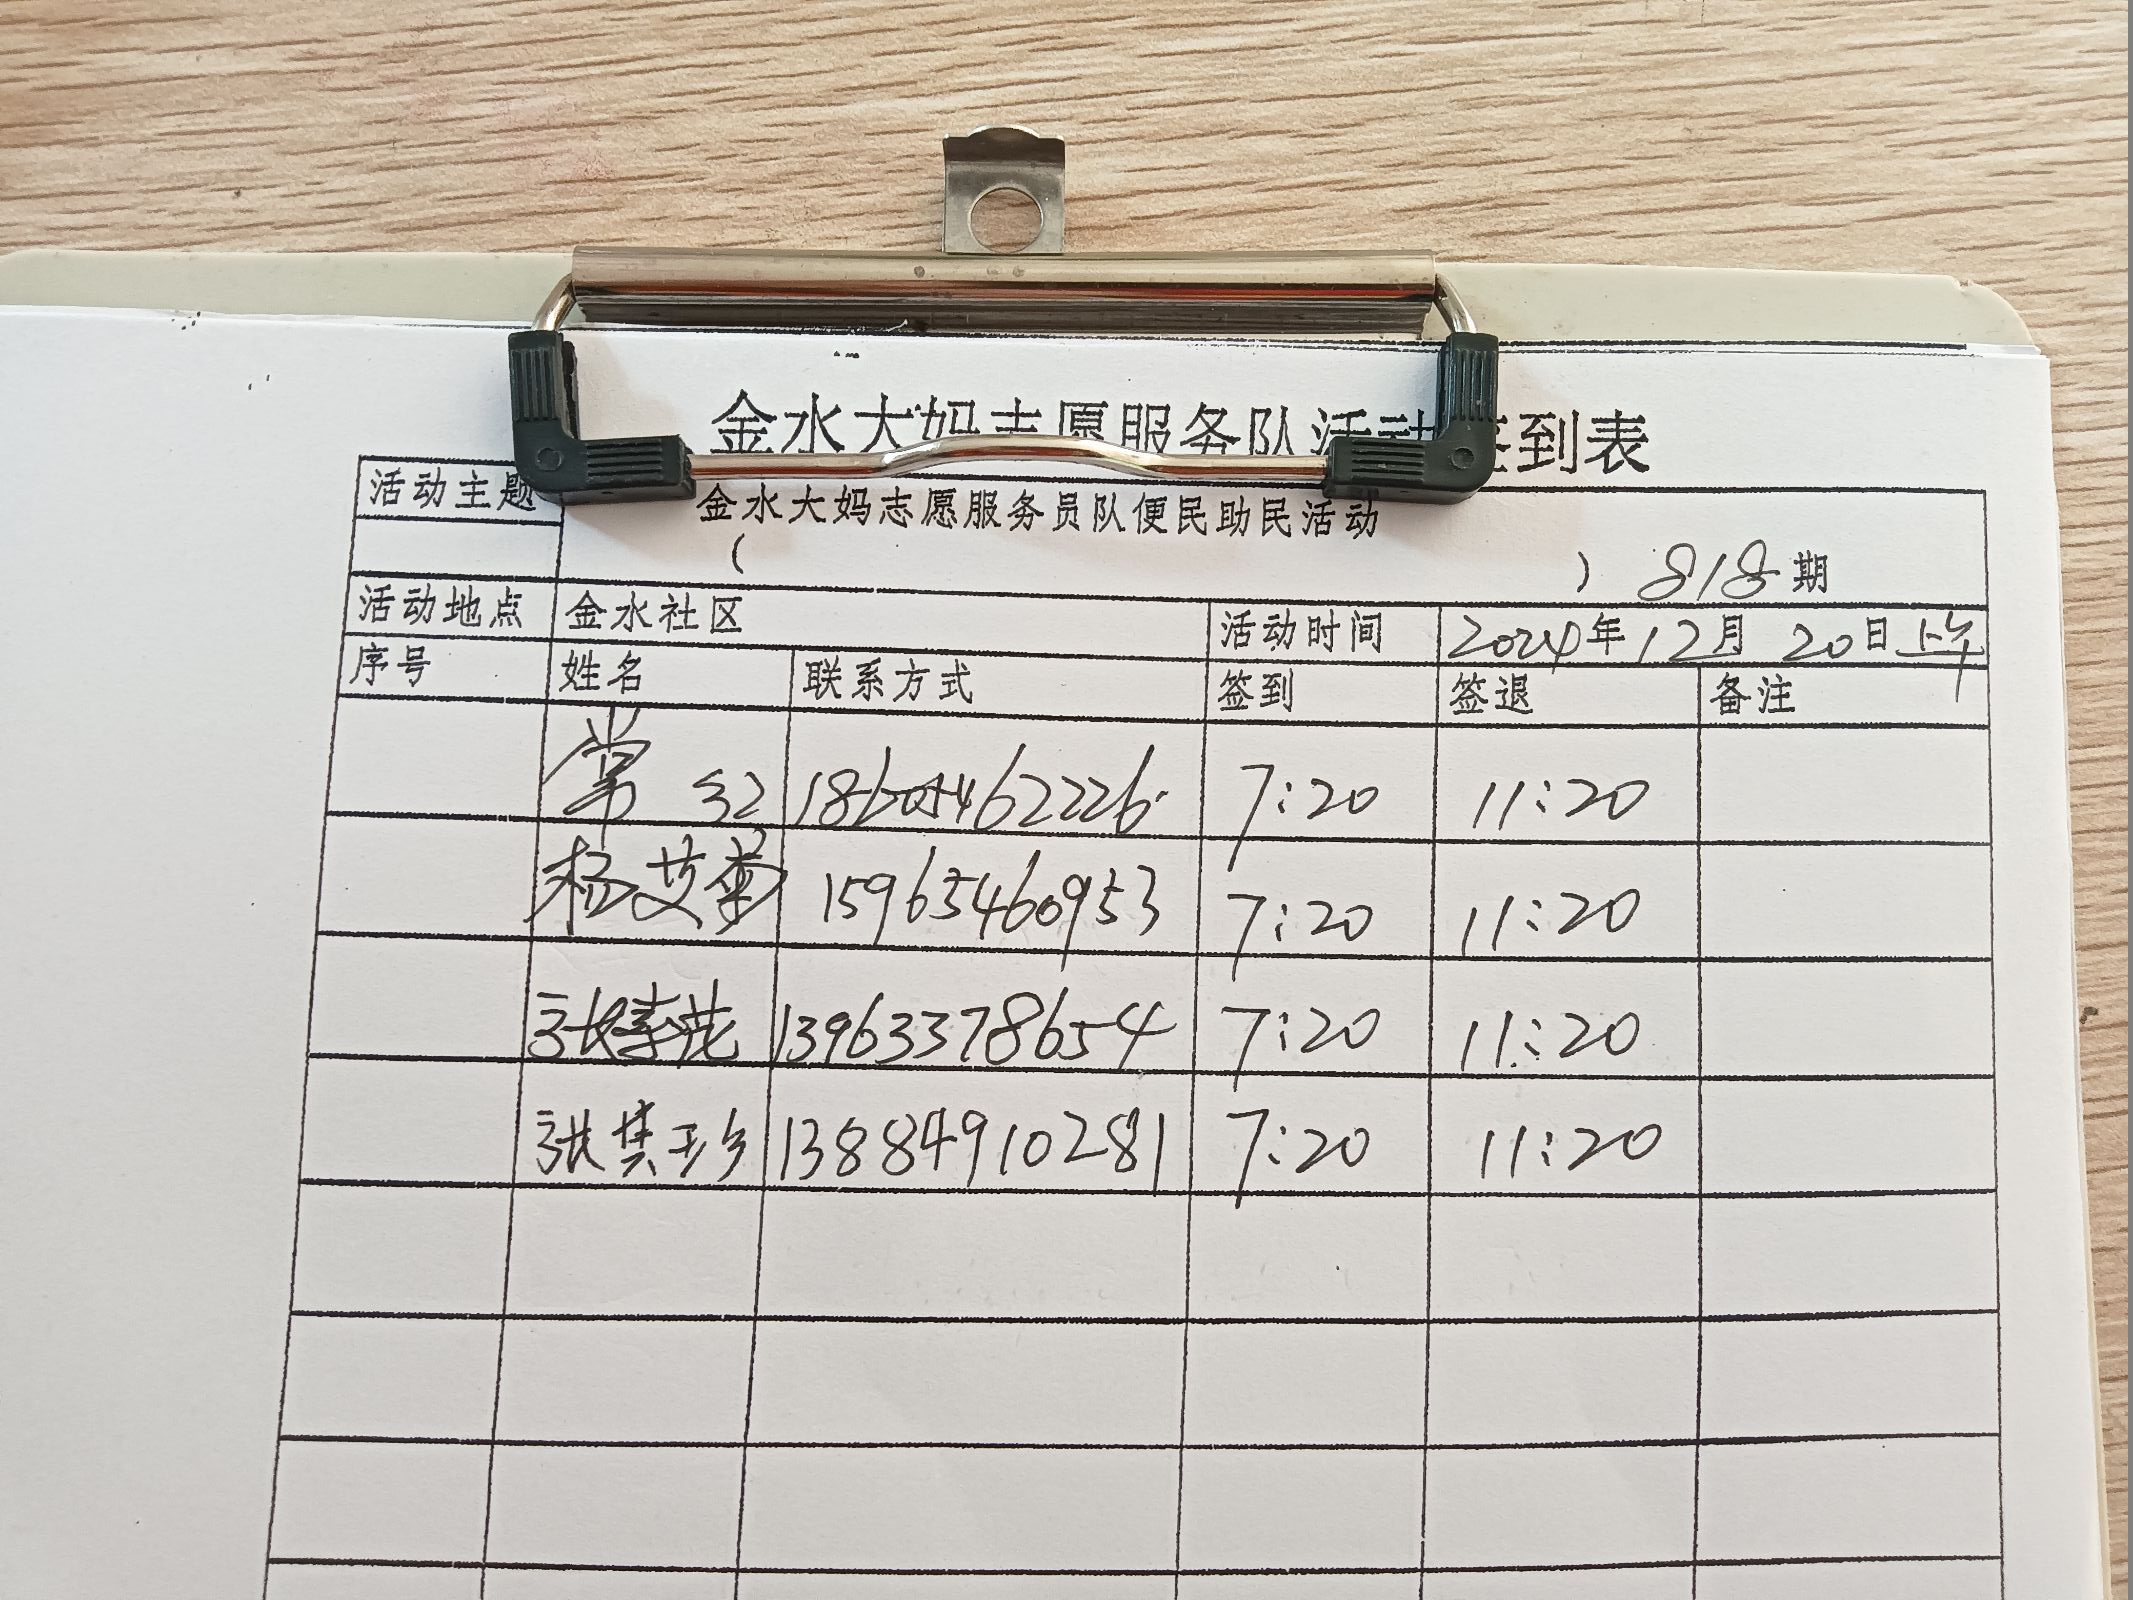 金水大妈志愿服务队活动签到表
活动主题 金水大妈志愿服务员队便民助民活动
( ) 818期
活动地点 金水社区 活动时间 2024年12月20日上午
序号 姓名 联系方式 签到 签退 备注
常红 18605462226 7:20 11:20
杨艾菊 15965460953 7:20 11:20
张 花 13963378654 7:20 11:20
张其珍 13884910281 7:20 11:20